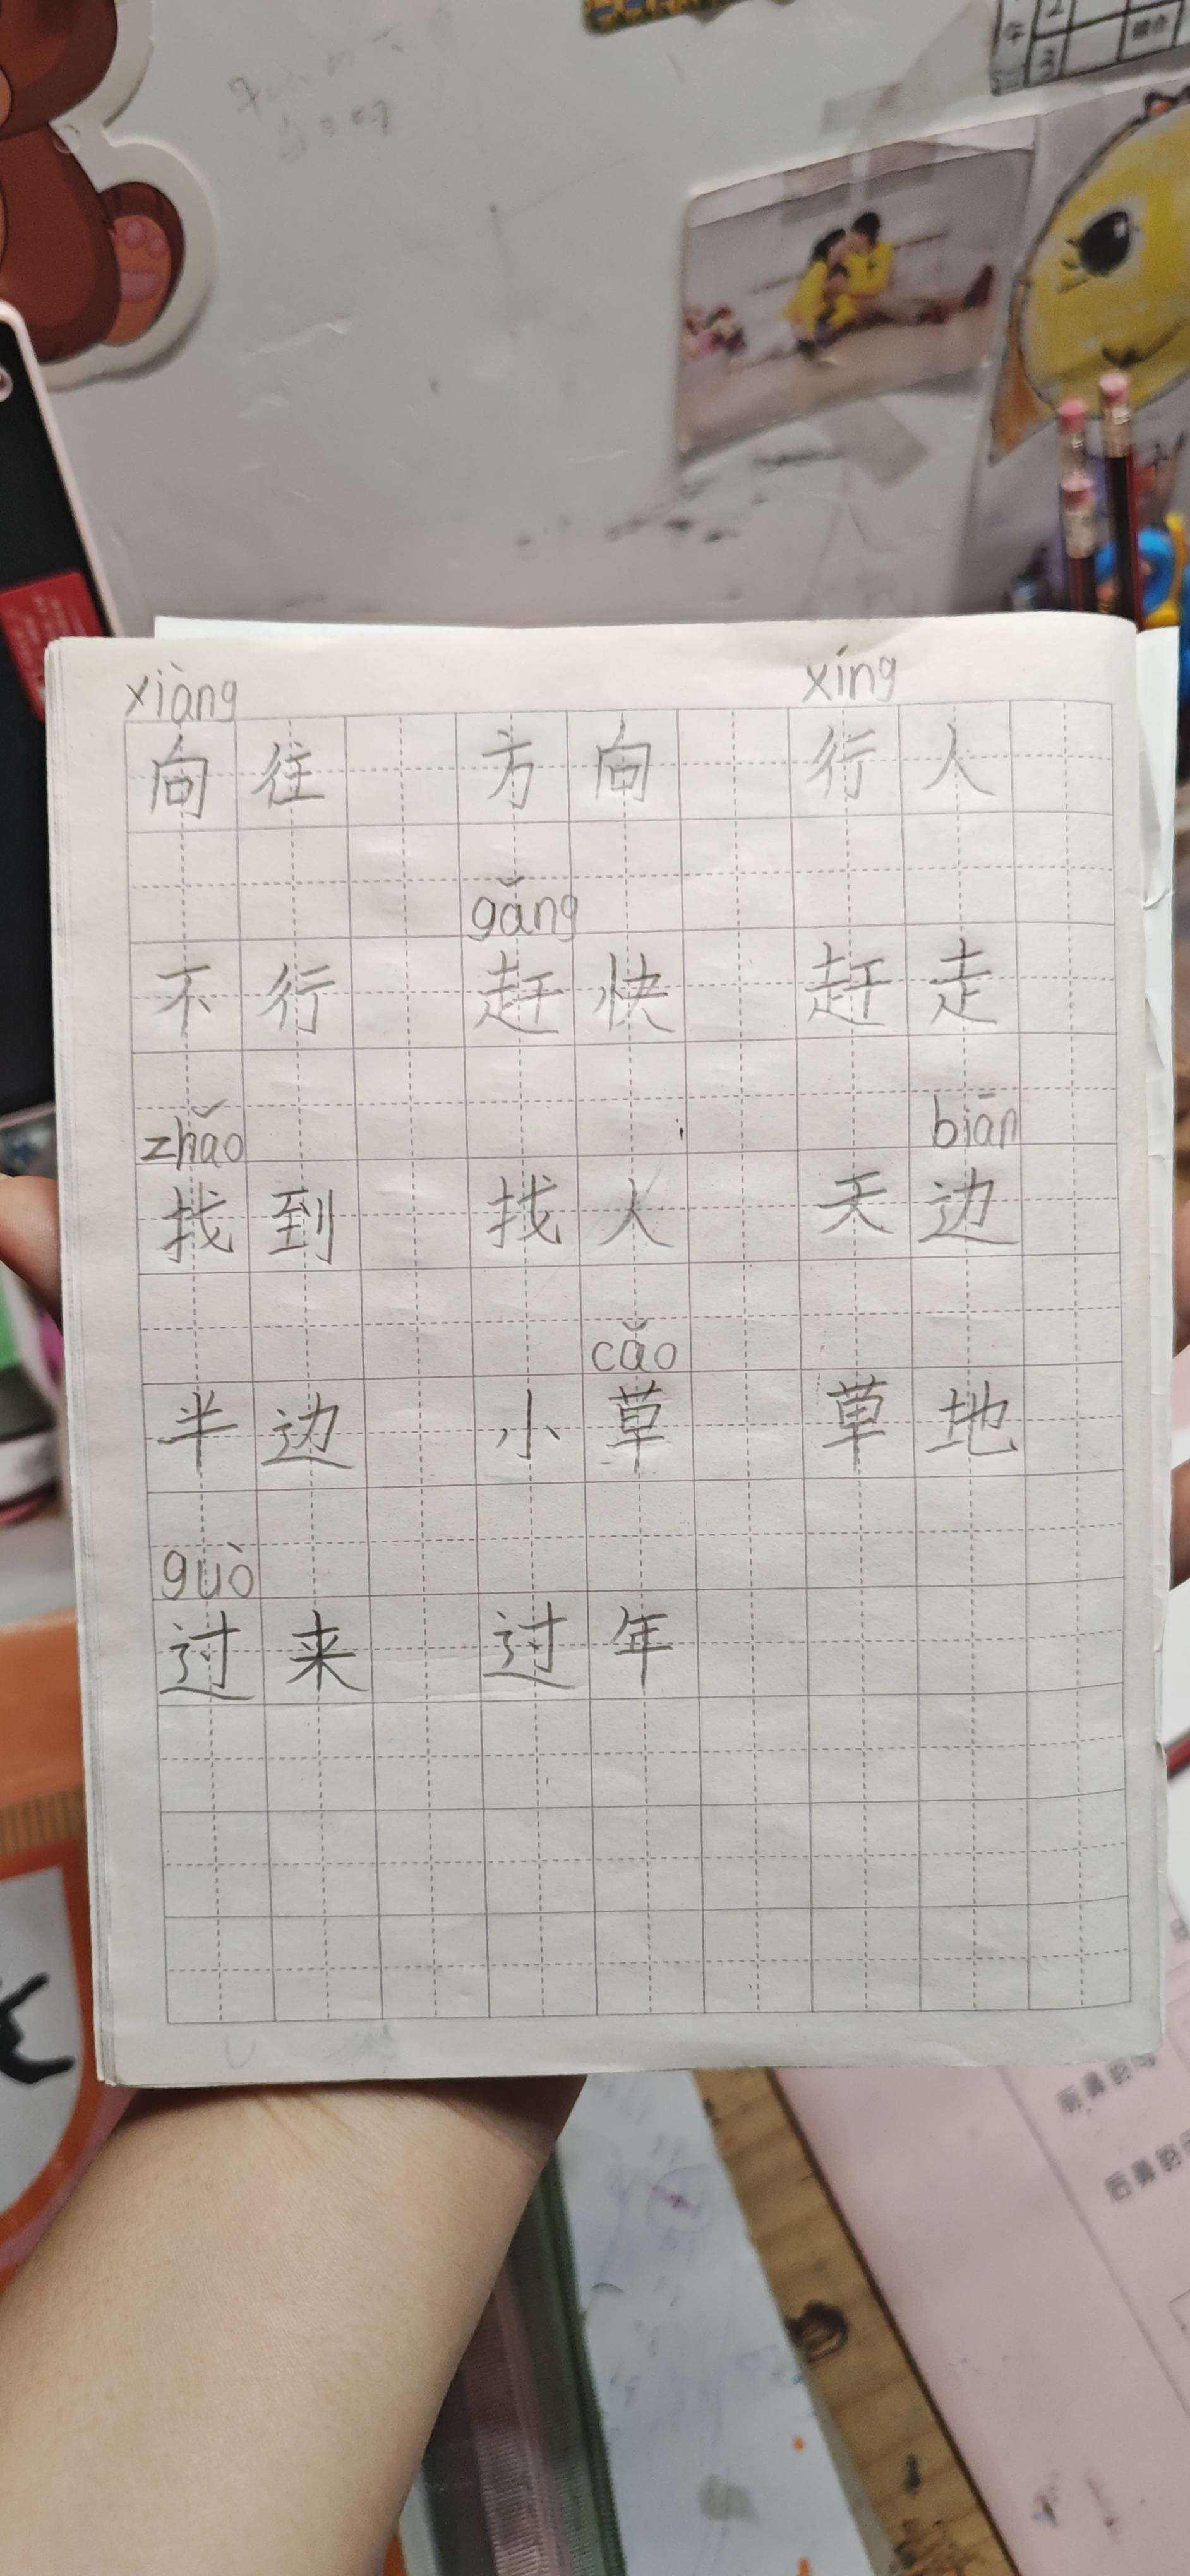 xiàng xíng
向往 方向 行人
gǎng
不行 赶快 赶走
zhǎo biān
找到 找人 天边
cǎo
半边 小草 草地
guò
过来 过年